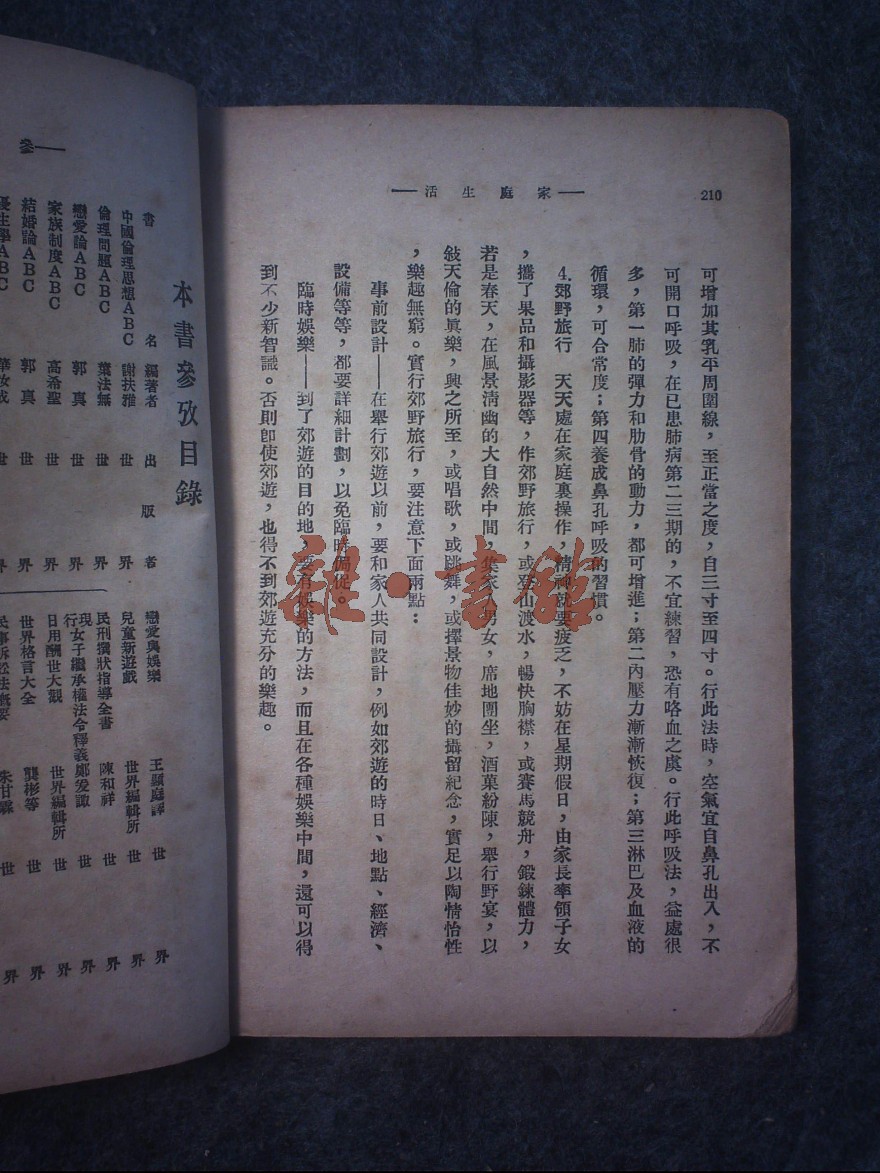 210
——家庭生活——
可增加其乳平周圍線，至正當之度，自三寸至四寸。行此法時，空氣宜自鼻孔出入，不
可開口呼吸，在已患肺病第二三期的，不宜練習，恐有咯血之虞。行此呼吸法，益處很
多，第一肺的彈力和肋骨的動力，都可增進；第二內壓力漸漸恢復；第三淋巴及血液的
循環，可合常度；第四養成鼻孔呼吸的習慣。
4.郊野旅行　天天處在家庭裏操作，精神就要疲乏，不妨在星期假日，由家長率領子女
，攜了果品和攝影器等，作郊野旅行，或登山渡水，暢快胸襟，或賽馬競舟，鍛鍊體力，
若是春天，在風景清幽的大自然中間，集家人男女，席地團坐，酒菓紛陳，舉行野宴，以
敍天倫的眞樂，興之所至，或唱歌，或跳舞，或擇景物佳妙的攝留紀念，實足以陶情怡性
，樂趣無窮。實行郊野旅行，要注意下面兩點：
事前設計——在舉行郊遊以前，要和家人共同設計，例如郊遊的時日、地點、經濟、
設備等等，都要詳細計劃，以免臨時侷促。
臨時娛樂——到了郊遊的目的地，要有娛樂的方法，而且在各種娛樂中間，還可以得
到不少新智識。否則卽使郊遊，也得不到郊遊充分的樂趣。
雜·書館
——參
本書參攷目錄
書名　編著者　出版者
中國倫理思想ABC　謝扶雅　世界
倫理問題ABC　葉法無　世界
戀愛論ABC　郭真　世界
家族制度ABC　高希聖　世界
結婚論ABC　郭真　世界
優生學ABC　華汝成　世界
戀愛與娛樂　王顯庭譯　世界
兒童新遊戲　世界編輯所　世界
民刑撰狀指導全書　陳和祥　世界
現行女子繼承權法令釋義　鄭爰諏　世界
日用酬世大觀　世界編輯所　世界
世界格言大全　龔彬等　世界
民事訴訟法概要　朱甘霖　世界